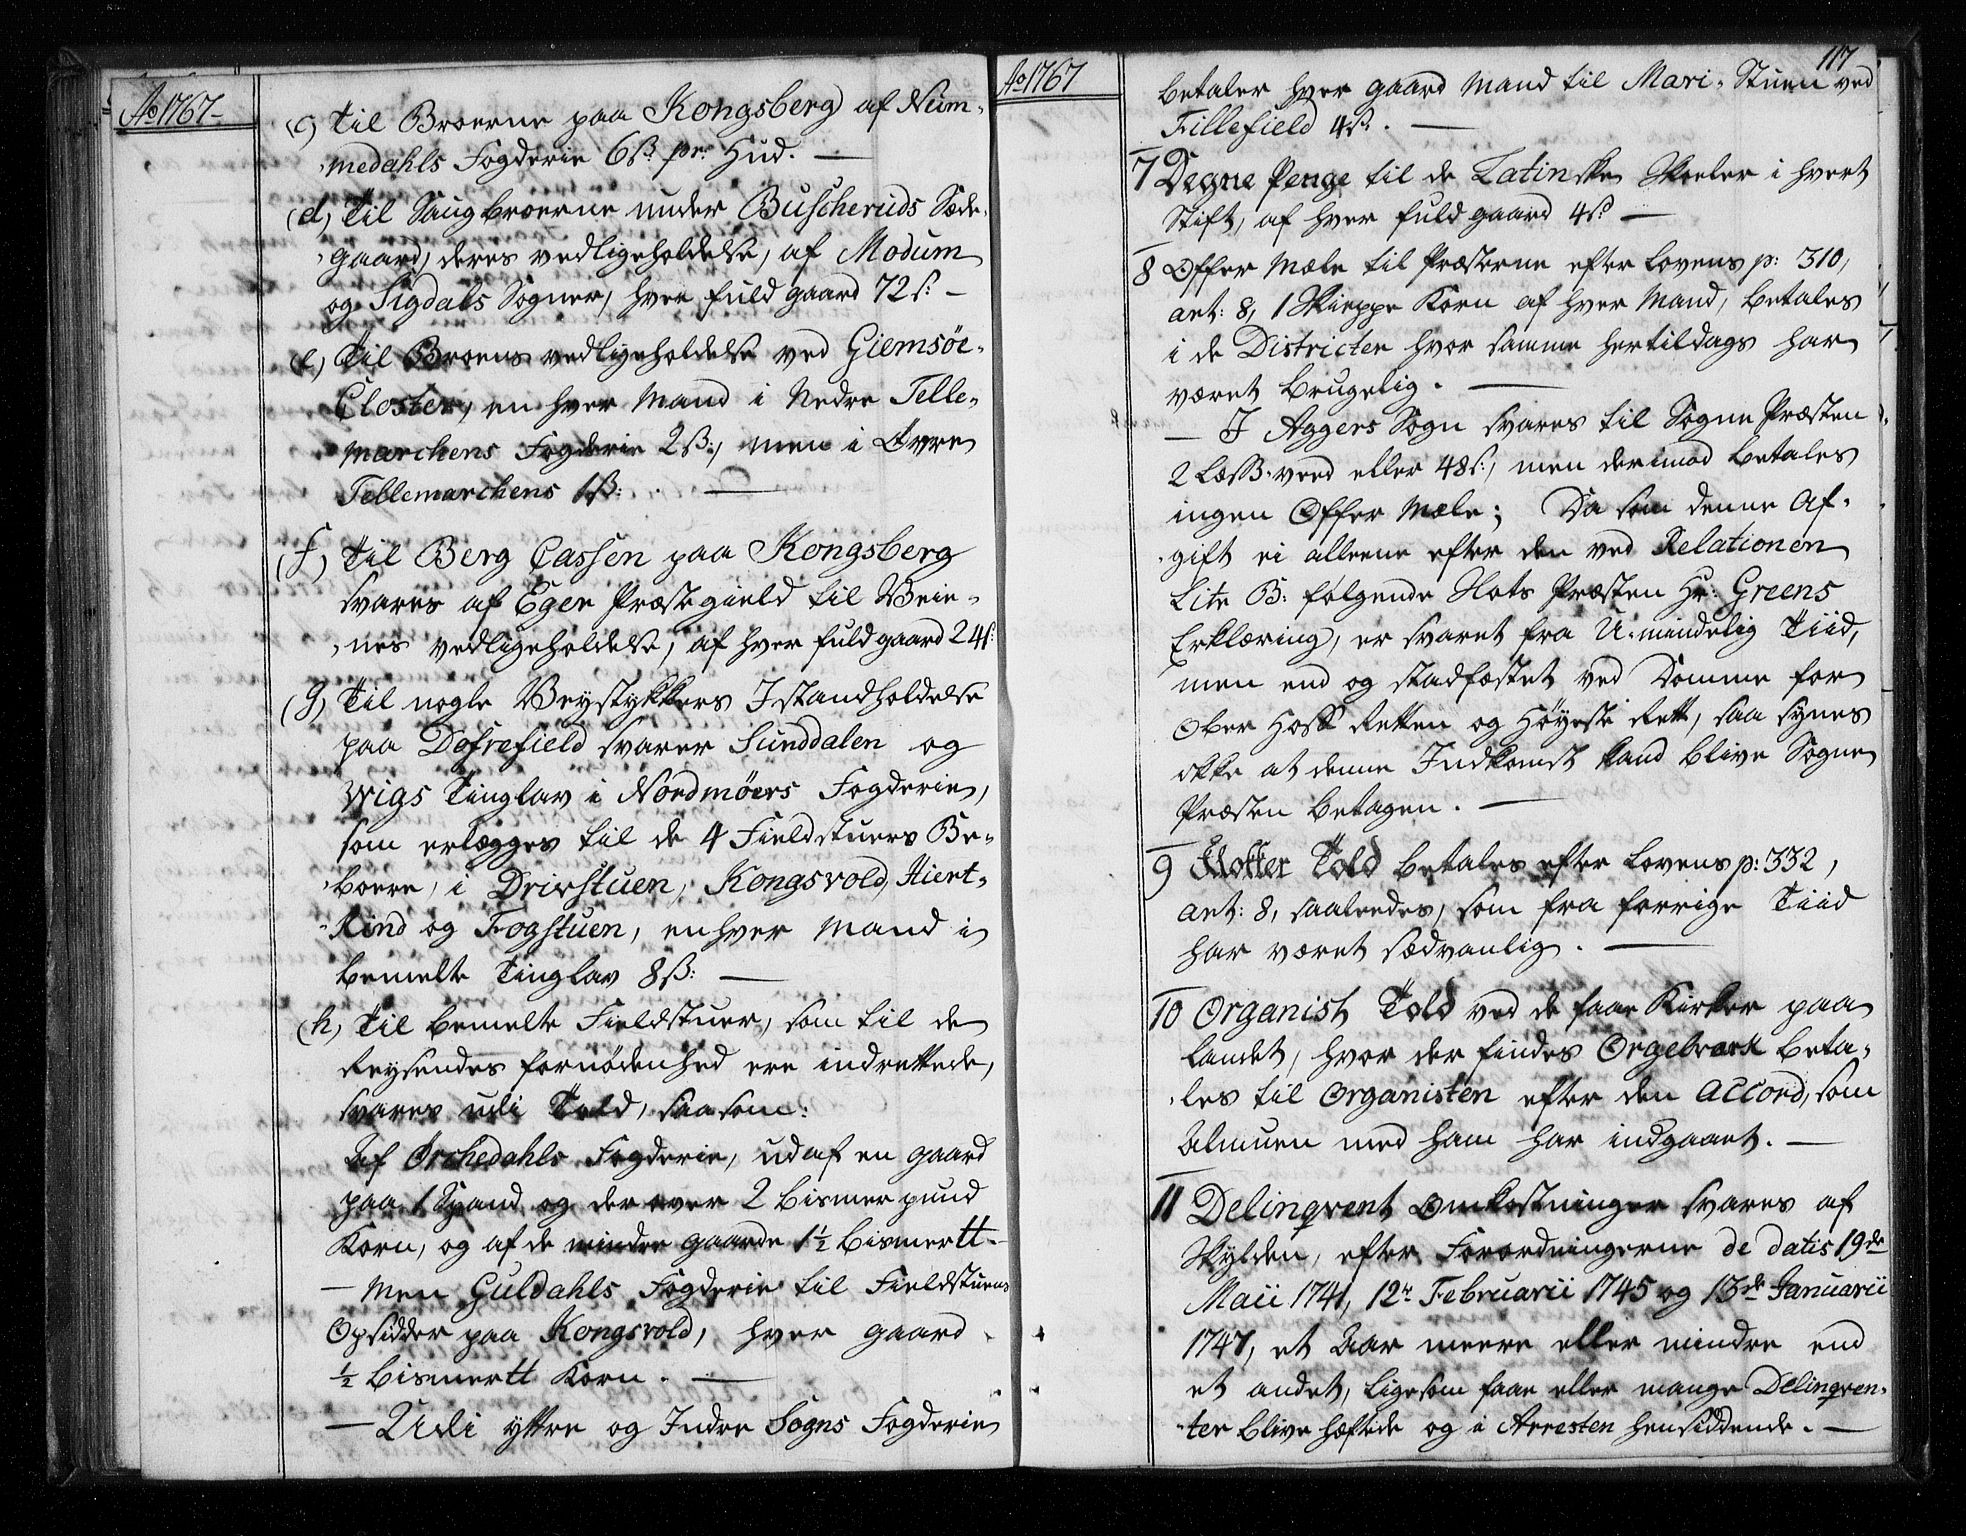 Ao 1767-
(c) Til Broerne paa Kongsberg af Num-
medahls Fogderie 6 ß pr: Hud. —
(d) Til Saugbroerne under Buscheruds Sæde-
gaard, deres vedligeholdelse, af Modum
og Sigdals Sogner, hver fuld gaard 72 ß: —
(e) Til Broens vedligeholdelse ved Giemsøe-
Closter, en hver Mand i Nedre Telle-
marchens Fogderie 2 ß:, men i Øvre
Tellemarchens 1 ß: . —
(f) Til Berg Cassen paa Kongsberg
svares af Eger Præstegield til Veie-
nes vedligeholdelse, af hver fuld gaard 24 ß:
(g) Til nogle Veystykkers Istandholdelse
paa Dofrefield svarer Sunddalen og
Wigs Tinglav i Nordmøers Fogderie,
som erlægges til de 4 Fieldstuers Be-
boere, i Drivstuen, Kongsvold, Hiert-
Kind og Fogstuen, enhver Mand i
bemelte Tinglav 8 ß: —
(h) Til bemelte Fieldstuer, som til de
Reysendes fornødenhed ere indrettede,
svares udi Told, saasom:
Af Orchedahls Fogderie, udaf en gaard
paa 1 Spand og derover 2 Bismerpund
Korn, og af de mindre gaarde 1½ Bismertt.—
— Men Guldahls Fogderie til Fieldstuens
Opsidder paa Kongsvold, hver gaard
½ Bismertt Korn. —
— Udi yttre og Indre Sogns Fogderie
Ao 1767
117
betaler hver gaard Mand til Mari-Stuen ved
Fillefield 4 ß. —
7 Degne Penge til de Latinske Skoeler i hvert
Stift, af hver fuld gaard 4 ß —
8 Offer Mæle til Præsterne efter Lovens p: 310,
art: 8, 1 Skieppe Korn af hver Mand, betales
i de Districter hvor samme hertildags har
været brugelig. —
— I Aggers Sogn svares til Sogne Præsten
2 Læss-veed eller 48 ß:, men derimod betales
ingen Offer Mæle; Da som denne Af-
gift ei alleene efter den ved Relationen
Litr B: følgende Slots Præsten Hr: Greens
Erklæring, er svaret fra U-mindelig Tiid,
men end og stadfæstet ved Domme for
Ober Hoff Retten og Høyeste Rett, saa synes
ikke at denne Indkomst kand blive Sogne
Præsten betagen. —
9 Klokker Told betales efter Lovens p: 332,
art: 8, saaleedes, som fra forrige Tiid
har været sædvanlig. —
10 Organist Told ved de faae Kirker paa
Landet, hvor der findes Orgelværk beta-
les til Organisten efter den Accord, som
Almuen med ham har indgaaet. —
11 Delinqvent Omkostninger svares af
Skylden, efter Forordningerne de datis 19de
Maii 1741, 12te Februarii 1745 og 13de Januarii
1747, et Aar meere eller mindre end
et andet, ligesom faae eller mange Delinqven-
ter blive hæftede og i Arresten hensiddende. —